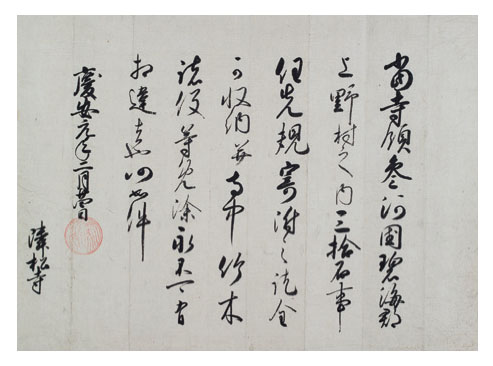 當寺領參河國碧海郡
上野村之内三拾石事
任先規寄附之訖全
可収納并寺中竹木
諸役等免除永不可有
相違者也仍如件
慶安元年二月廿四日
隣松寺